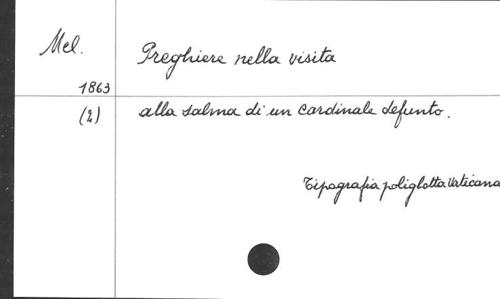 Mel. Preghiere nella visita
1863
(2) alla salma di un cardinale defunto.
Tipografia poliglotta Vaticana